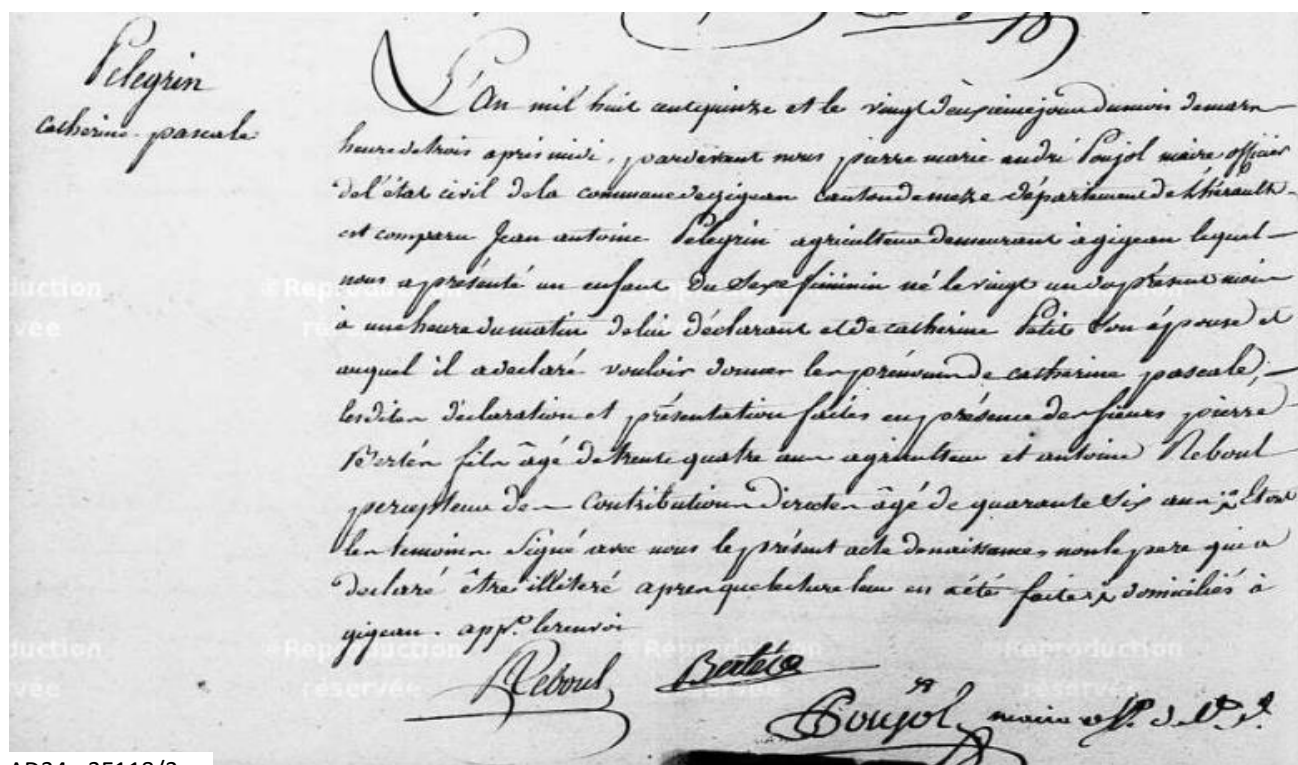 Pelegrin
Catherine pascale
L'An mil huit cent quinze et le vingt deuxieme jour du mois de mars
heure de trois apres midi, pardevant nous pierre marie andré Poujol maire officier
de l'état civil de la commune de gigean canton de meze département de l'hérault
est comparu Jean antoine Pelegrin agriculteur demeurant à gigean lequel
nous a présenté un enfant du sexe féminin né le vingt un du présent mois
à une heure du matin de lui déclarant et de catherine Petit son épouse et
auquel il a declaré vouloir donner les prénoms de catherine pascale,
lesdites déclaration et présentation faites en présence des sieurs pierre
fils âgé de trente quatre ans agriculteur et antoine Reboul
percepteur des Contributions directes âgé de quarante six ans × Et ont
les temoins Signé avec nous le présent acte de naissance, non le pere qui a
declaré être illiteré apres que lecture leur en a été faite × domiciliés à
gigean. app.é le renvoi
Reboul
Poujol maire
©Reproduction
réservée
©Reproduction
réservée
©Reproduction
réservée
©Reproduction
réservée
AD34 - 3E118/2